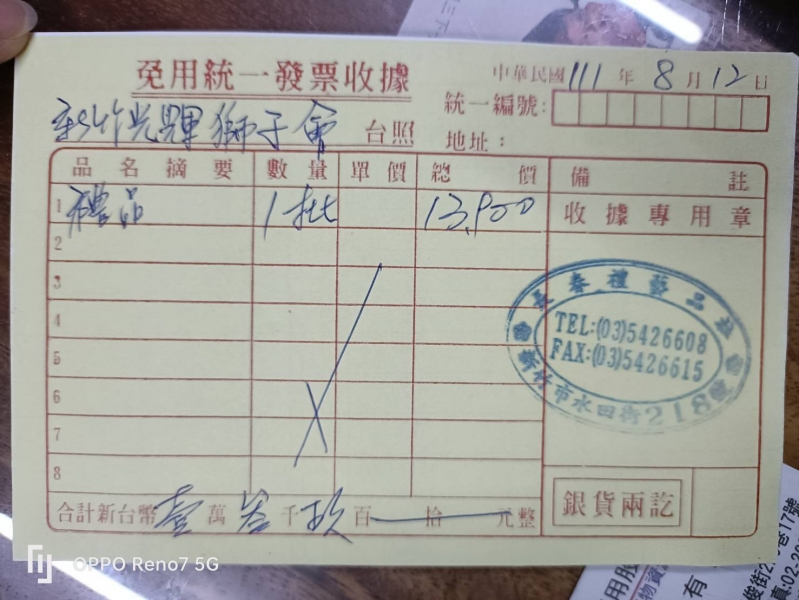 免用統一發票收據
中華民國 111 年 8 月 12 日
統一編號:
新竹光輝獅子會 台照
地址:
品名摘要 數量 單價 總價 備註
1 禮品 1批 13,900
收據專用章
2
3
4
5
6
7
8
長春禮藝品社
TEL:(03)5426608
FAX:(03)5426615
新竹市水田街218號
合計新台幣壹萬參千玖百 拾 元整
銀貨兩訖
OPPO Reno7 5G
巷17號
有